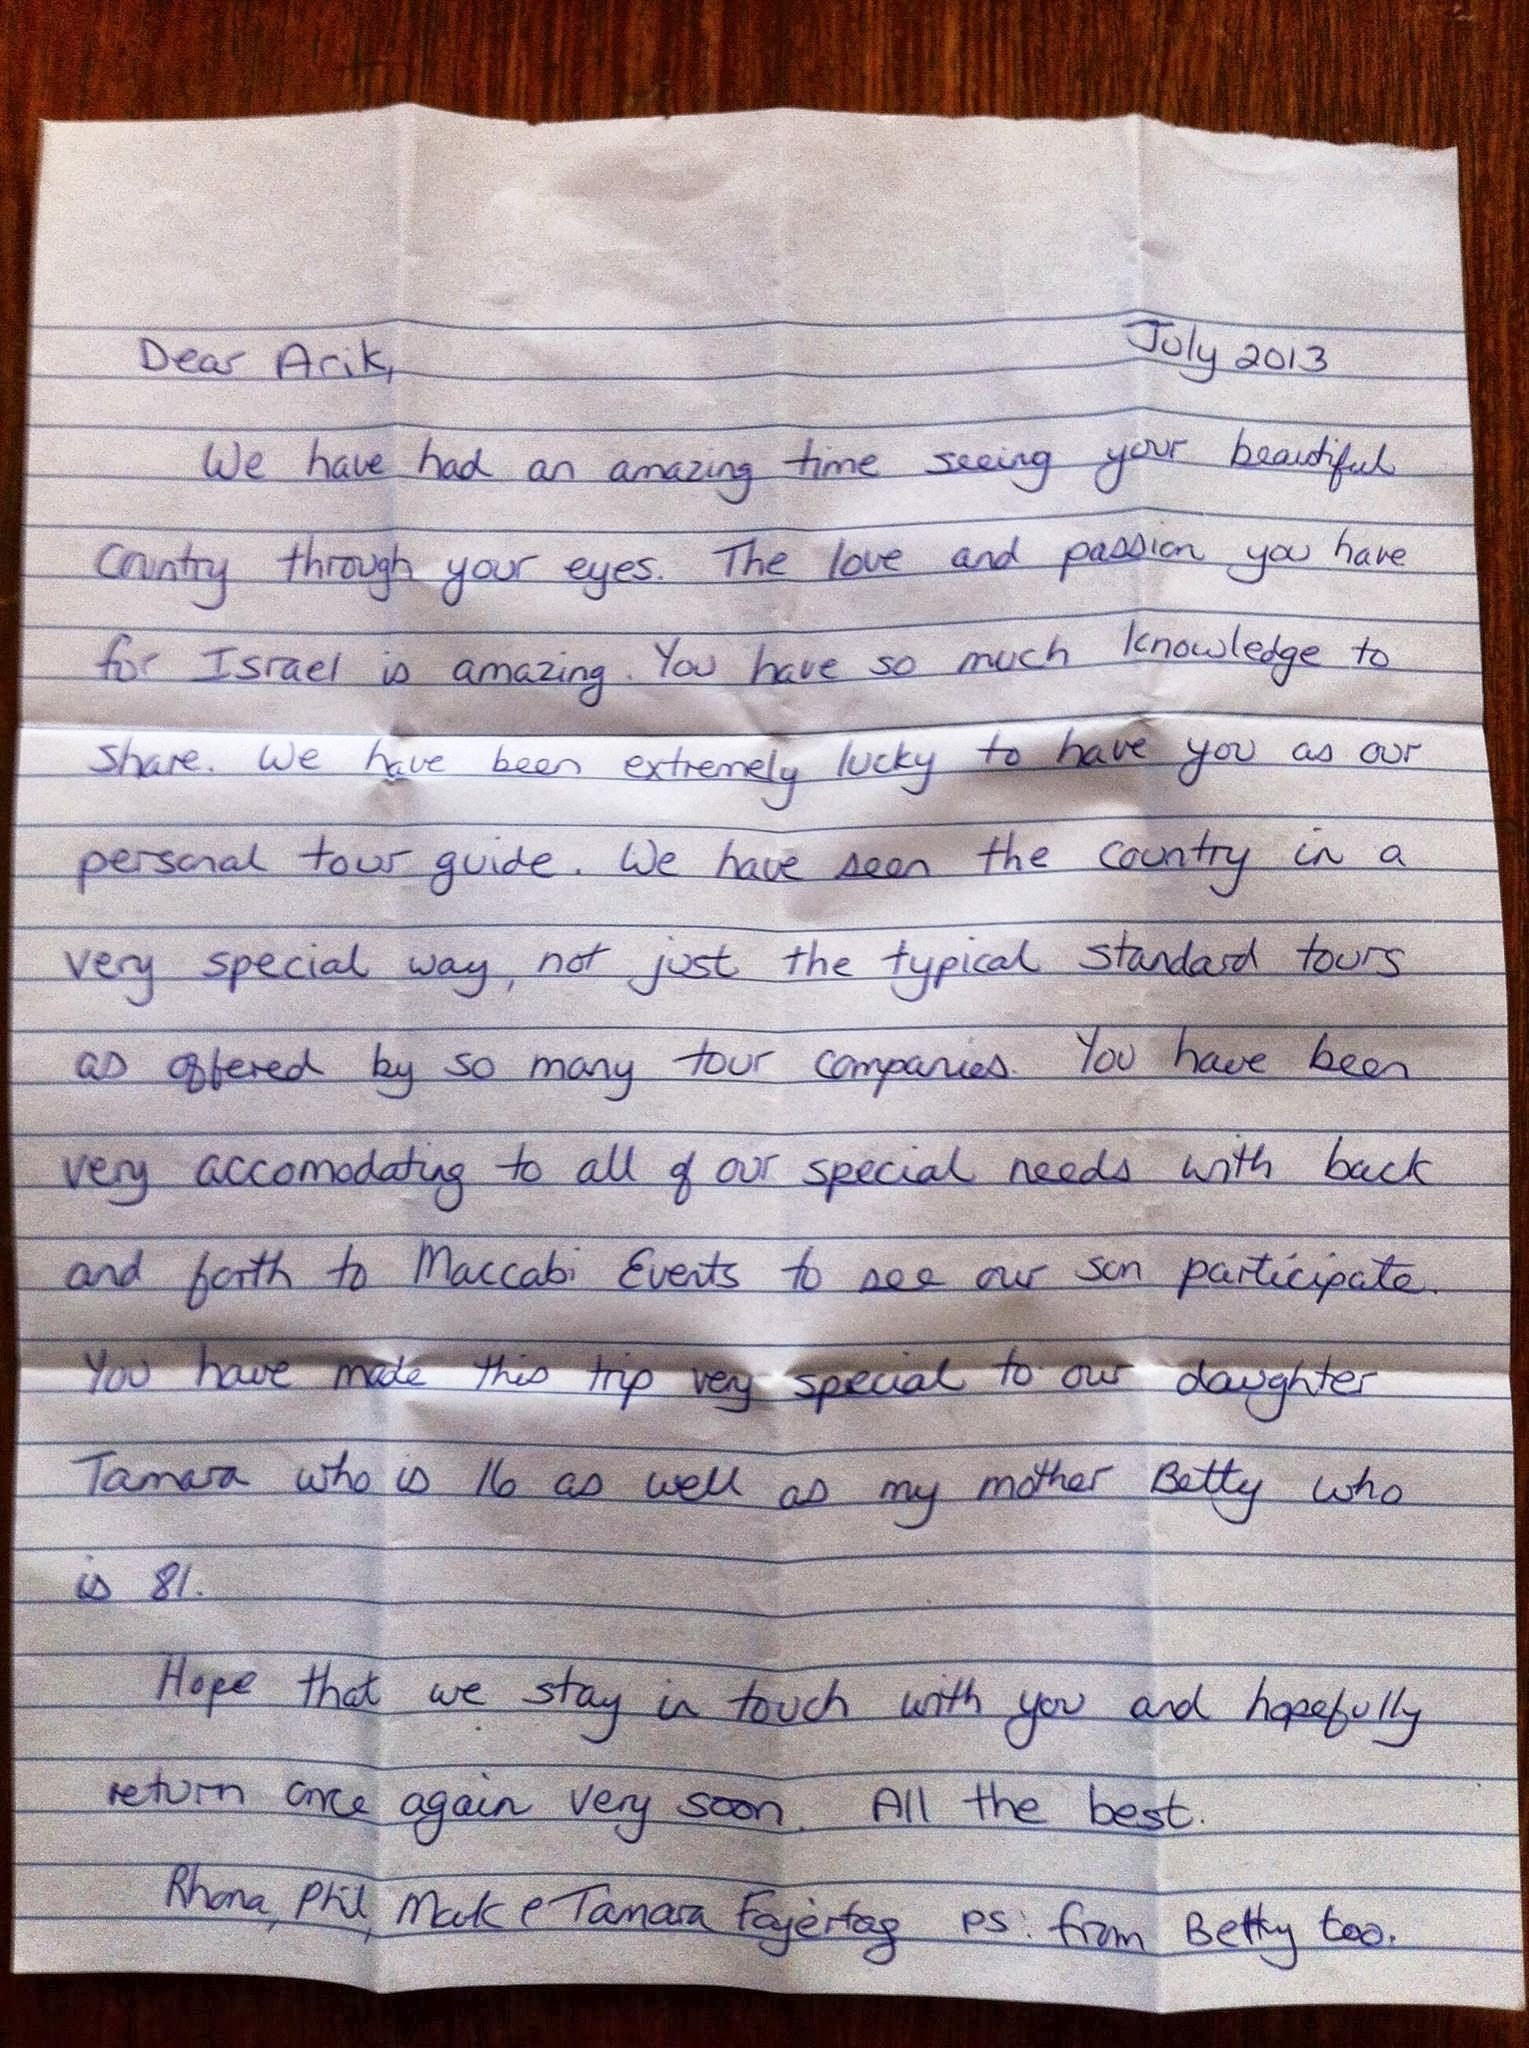 Dear Arik, July 2013
We have had an amazing time seeing your beautiful
country through your eyes. The love and passion you have
for Israel is amazing. You have so much knowledge to
share. We have been extremely lucky to have you as our
personal tour guide. We have seen the country in a
very special way, not just the typical standard tours
as offered by so many tour companies. You have been
very accomodating to all of our special needs with back
and forth to Maccabi Events to see our son participate.
You have made this trip very special to our daughter
Tamara who is 16 as well as my mother Betty who
is 81.
Hope that we stay in touch with you and hopefully
return once again very soon. All the best.
Rhona, Phil, Mark & Tamara Fajertag PS: from Betty too.